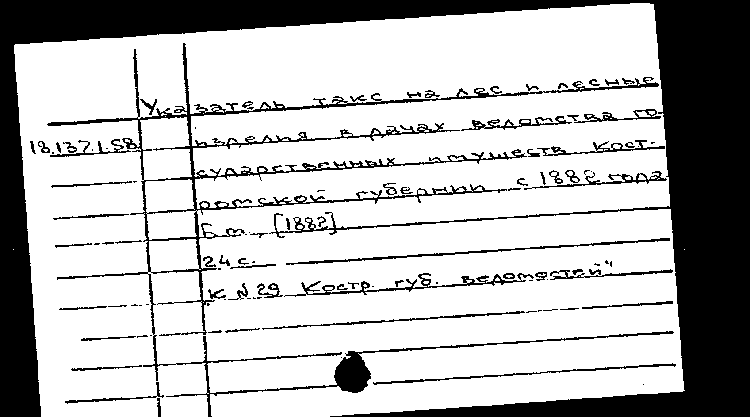 Указатель такс на лес и лесные
18.137.1.58
изделия в дачах ведомства го-
сударственных имуществ Кост-
ромской губернии, с 1882 года
Б.м., [1882].
24 с.
К №29 Костр. губ. ведомостей"